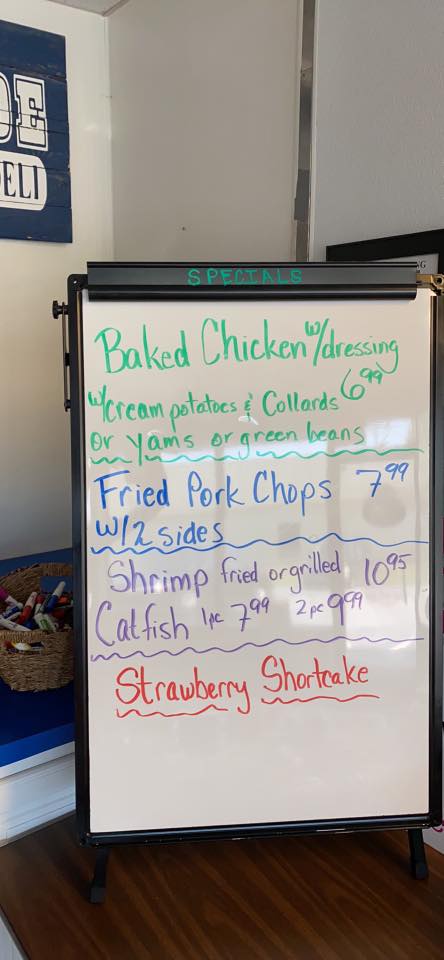 DE
DELI
SPECIALS
Baked Chicken w/dressing
6.99
w/cream potatoes & Collards
or yams or green beans
Fried Pork Chops 7.99
w/2 sides
Shrimp fried or grilled 10.95
Catfish 1pc 7.99 2pc 9.99
Strawberry Shortcake